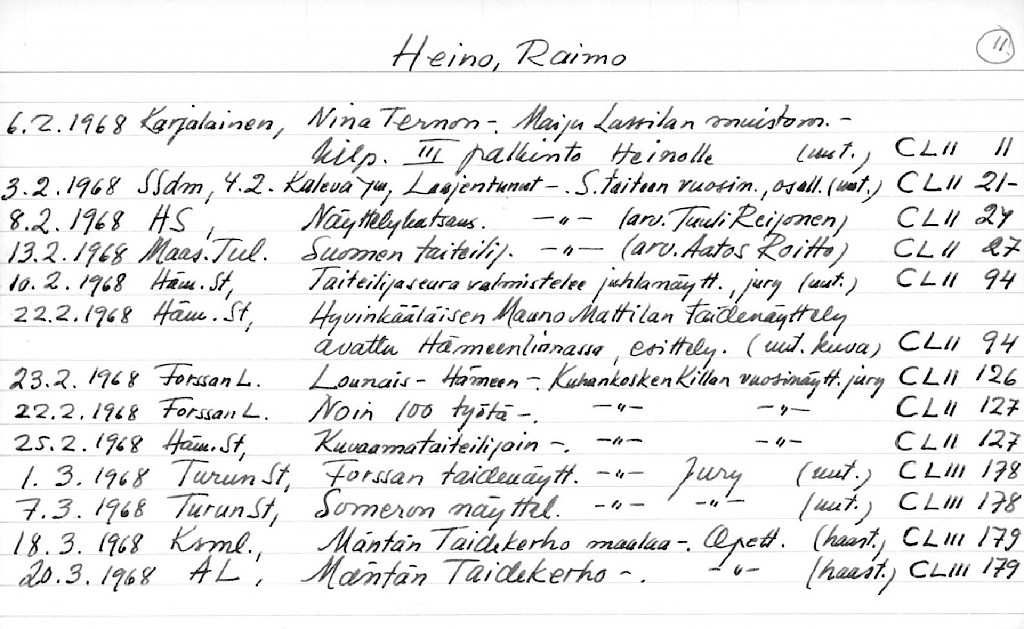 Heino, Raimo 11
6.2.1968 Karjalainen, Nina Ternon -. Maiju Lassilan muistom. -
kilp. III palkinto Heinolle (uut.) CLII 11
3.2.1968 SSdm, 4.2. Kaleva ym, Laajentunut -. S. taiteen vuosin., osall. (uut.) CLII 21-
8.2.1968 HS, Näyttelykatsaus. -"- (arv. Tuuli Reijonen) CLII 24
13.2.1968 Maas. Tul. Suomen taiteilij. -"- (arv. Aatos Roitto) CLII 27
10.2.1968 Häm. St, Taiteilijaseura valmistelee juhlanäytt., jury (uut.) CLII 94
22.2.1968 Häm. St, Hyvinkääläisen Mauno Mattilan taidenäyttely
avattu Hämeenlinnassa, esittely. (uut. kuva) CLII 94
23.2.1968 Forssan L. Lounais-Hämeen -. Kuhankosken Killan vuosinäytt. jury CLII 126
22.2.1968 Forssan L. Noin 100 työtä -. -"- -"- CLII 127
25.2.1968 Häm. St, Kuvaamataiteilijain -. -"- -"- CLII 127
1.3.1968 Turun St, Forssan taidenäytt. -"- Jury (uut.) CLIII 178
7.3.1968 Turun St, Someron näyttel. -"- -"- (uut.) CLIII 178
18.3.1968 Ksml., Mäntän Taidekerho maalaa -. Opett. (haast.) CLIII 179
20.3.1968 AL, Mäntän Taidekerho -. -"- (haast.) CLIII 179